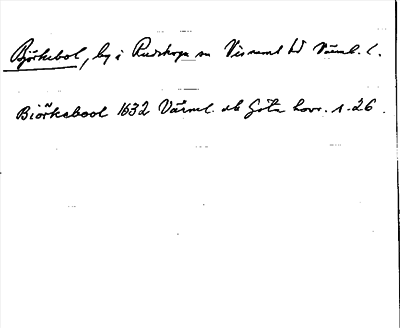 Björkebol, by i Rudskoga sn Visnums hd Värml. l.
Biörkebool 1632 Värml. ab Göta hovr. 1.26.